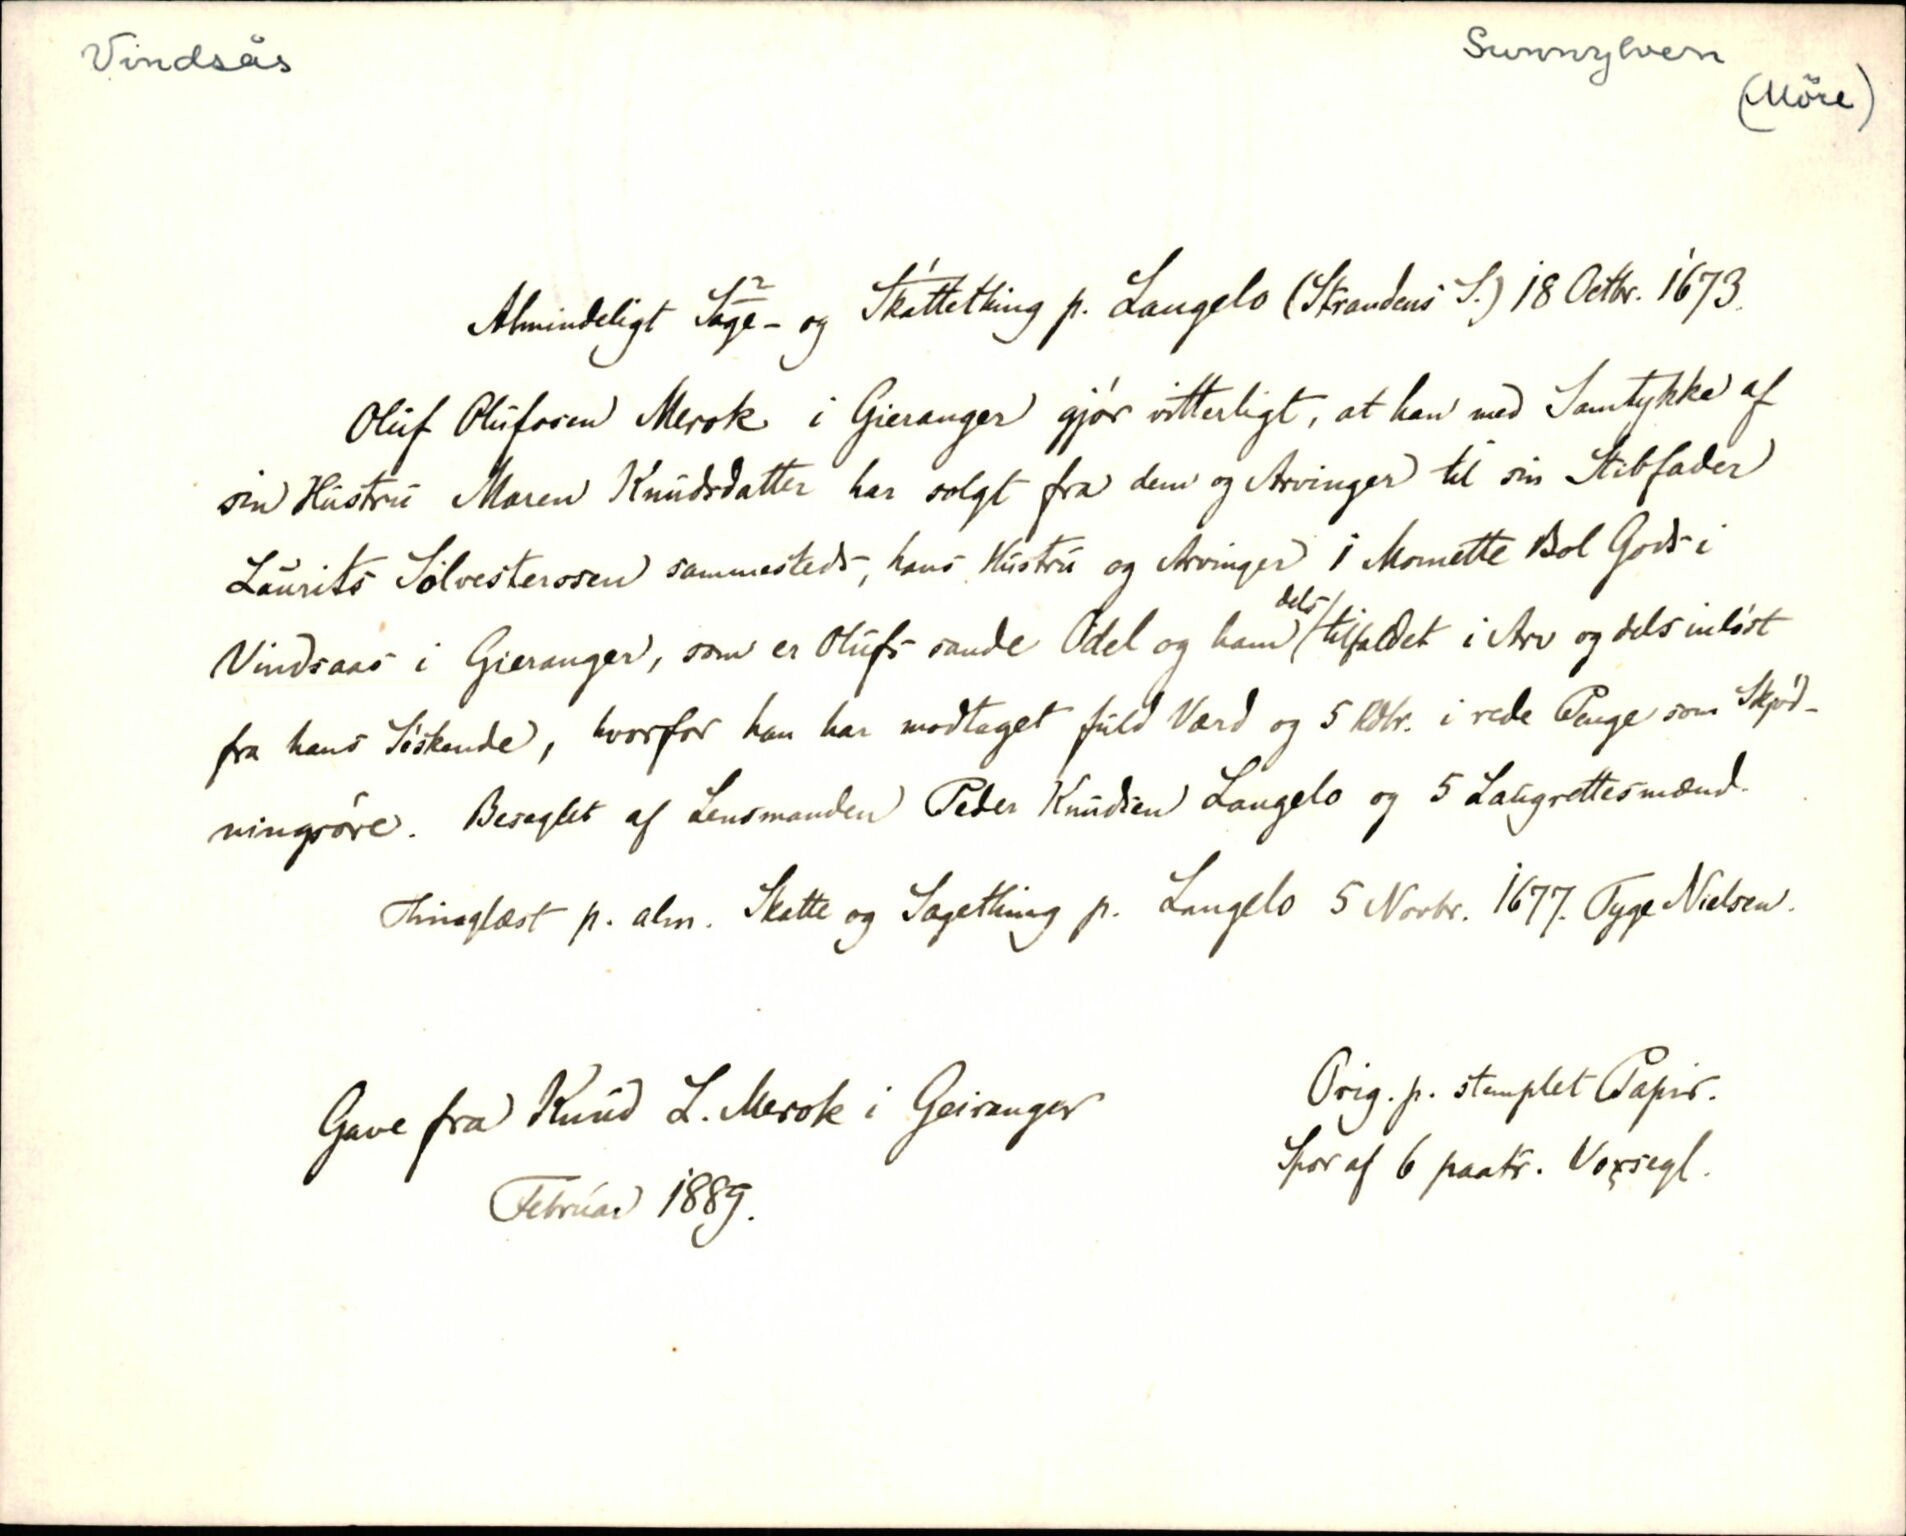 Vindsås
Sunnylven
(Möre)
Almindeligt Sage²- og Skattething¹ p. Langelo (Strandens S.) 18 Octbr. 1673.
Oluf Olufssen Merok i Gieranger gjør vitterligt, at han med Samtykke af
sin Hustru Maren Knudsdatter har solgt fra dem og Arvinger til sin Stibfader
Laurits Sølvesterssen sammesteds, hans Hustru og Arvinger 1 Momette Bol Gods i
Vindsaas i Gieranger, som er Olufs sande Odel og ham dels/ tilfaldet i Arv og dels inløst
fra hans Søskende, hvorfor han har modtaget fuld Værd og 5 Rdlr. i rede Penge som Skjød-
ningsøre. Beseglet af Lensmanden Peder Knudsen Langelo og 5 Laugrettesmænd.
Thinglæst p. alm. Skatte og Sagething p. Langelo 5 Novbr. 1677. Tyge Nielsen.
Gave fra Knud L. Merok i Geiranger
Februar 1889.
Orig. p. stemplet Papir.
Spor af 6 paatr. Voxsegl.